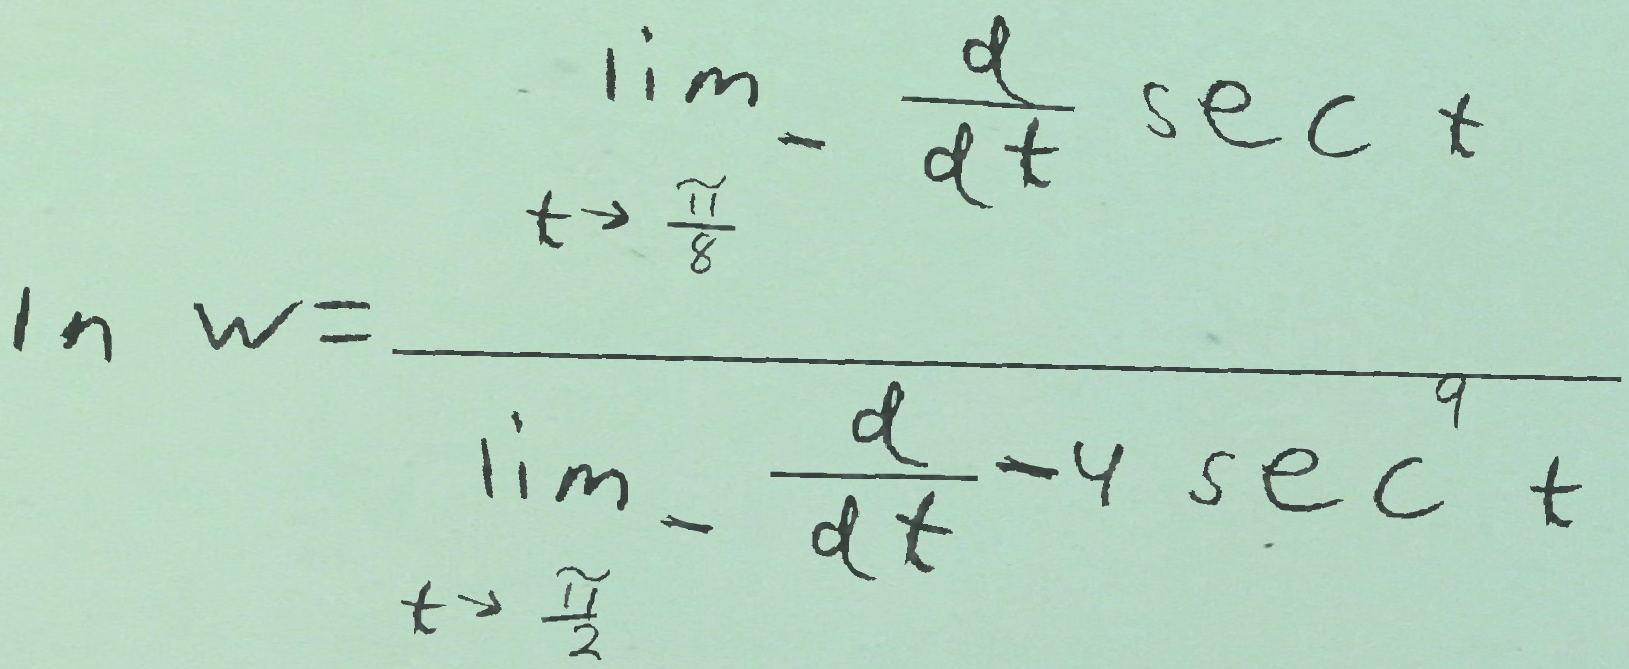 \ln w = \frac{\lim_{t \to \frac{\pi}{8}} - \frac{d}{dt} \sec t}{\lim_{t \to \frac{\pi}{2}} - \frac{d}{dt} - 4 \sec^{9} t}